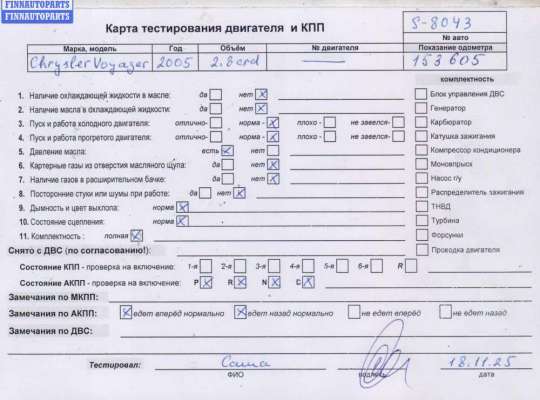 FINNAUTOPARTS
FINNAUTOPARTS
Карта тестирования двигателя и КПП
S-8043
№ авто
Марка, модель Год Объём № двигателя Показание одометра
Chrysler Voyager 2005 2.8 crd — 153 605
комплектность
1. Наличие охлаждающей жидкости в масле: да нет X
Блок управления ДВС
2. Наличие масла в охлаждающей жидкости: да нет X
Генератор
3. Пуск и работа холодного двигателя: отлично- норма - X плохо - не завелся-
Карбюратор
4. Пуск и работа прогретого двигателя: отлично- норма - X плохо - не завелся-
Катушка зажигания
5. Давление масла: есть X нет
Компрессор кондиционера
6. Картерные газы из отверстия масляного щупа: да нет X
Моновпрыск
7. Наличие газов в расширительном бачке: да нет X
Насос г/у
8. Посторонние стуки или шумы при работе: да нет X
Распределитель зажигания
9. Дымность и цвет выхлопа: норма X
ТНВД
10. Состояние сцепления: норма X
Турбина
11. Комплектность : полная X
Форсунки
Снято с ДВС (по согласованию!):
Проводка двигателя
Состояние КПП - проверка на включение: 1-я 2-я 3-я 4-я 5-я 6-я R
Состояние АКПП - проверка на включение: P X R X N X С X
Замечания по МКПП:
Замечания по АКПП: X едет вперёд нормально X едет назад нормально не едет вперёд не едет назад
Замечания по ДВС:
Тестировал: Саша 18.11.25
ФИО подпись дата